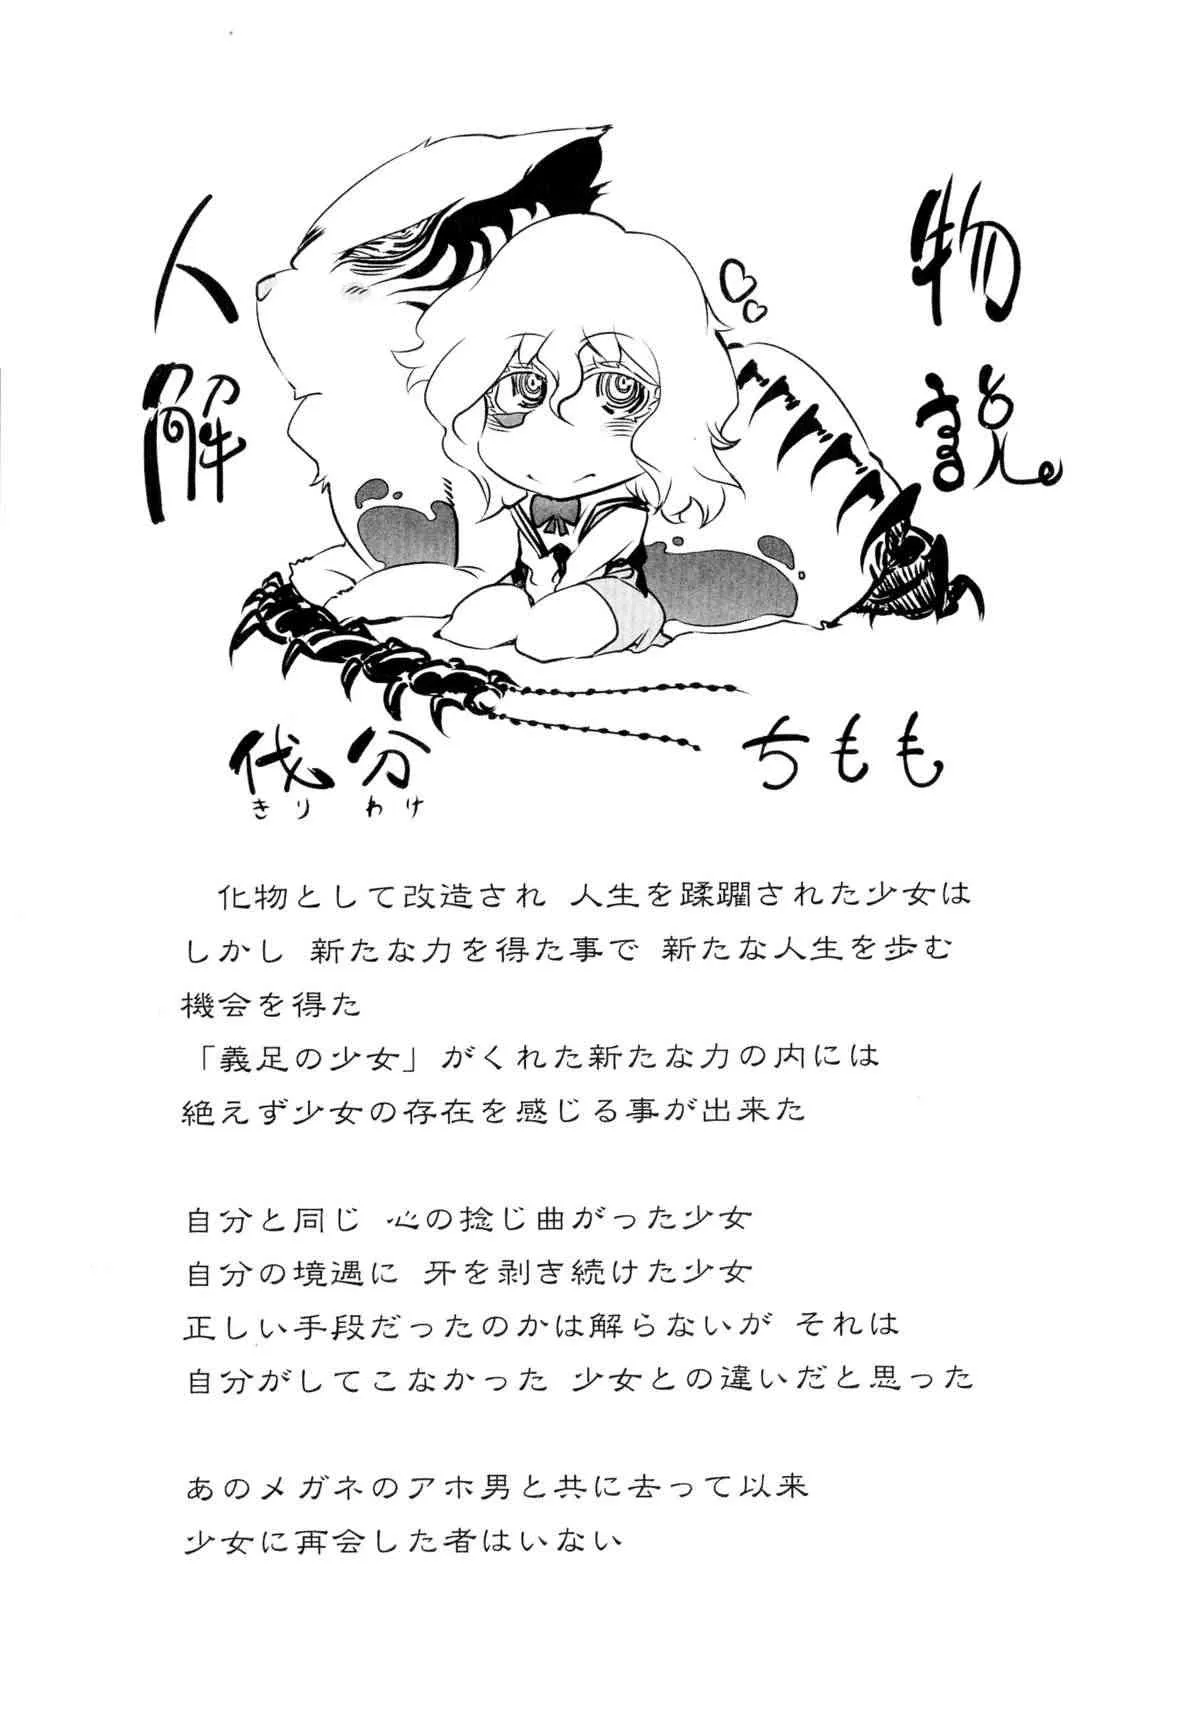 人物
解説。
伐分 ちもも
きり わけ
化物として改造され 人生を蹂躙された少女は
しかし 新たな力を得た事で 新たな人生を歩む
機会を得た
「義足の少女」がくれた新たな力の内には
絶えず少女の存在を感じる事が出来た
自分と同じ 心の捻じ曲がった少女
自分の境遇に 牙を剥き続けた少女
正しい手段だったのかは解らないが それは
自分がしてこなかった 少女との違いだと思った
あのメガネのアホ男と共に去って以来
少女に再会した者はいない